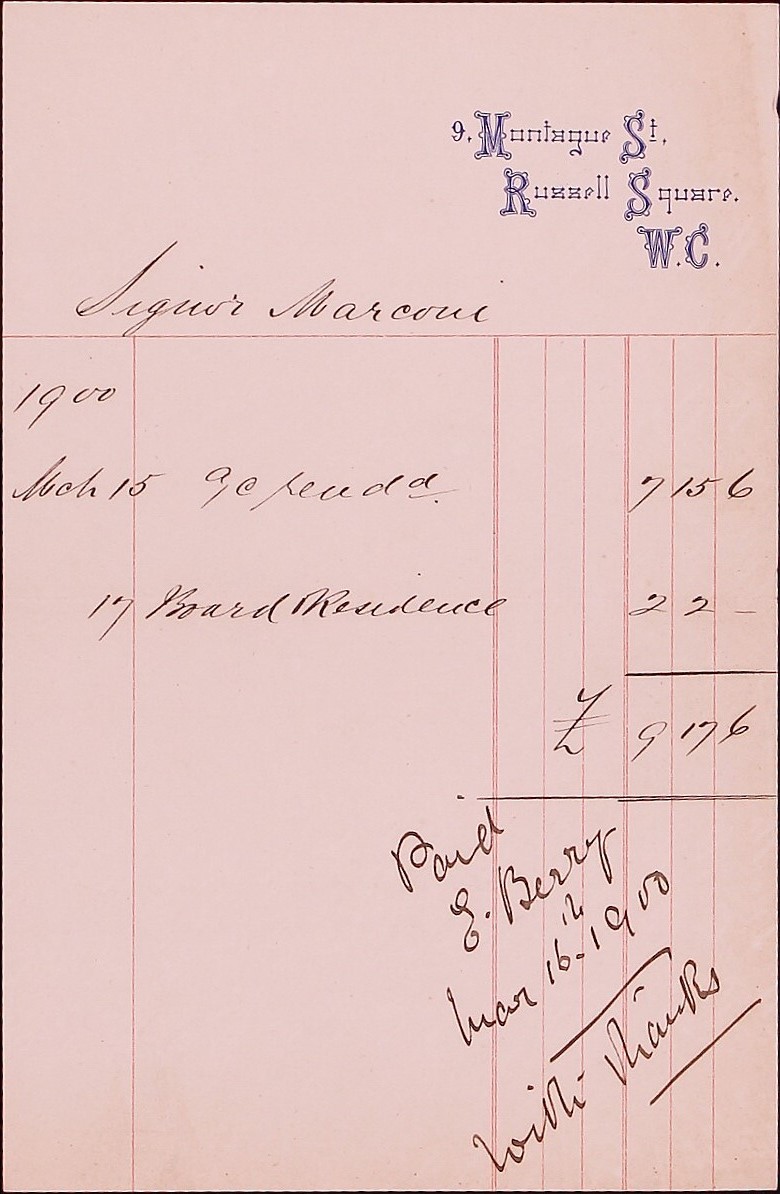 9, Montague St,
Russell Square.
W.C.
Signor Marconi
1900
Mch 15 a/c rendd. 7 15 6
17 Board Residence 2 2 –
£ 9 17 6
Paid
E. Berry
Mar 16th 1900
With thanks